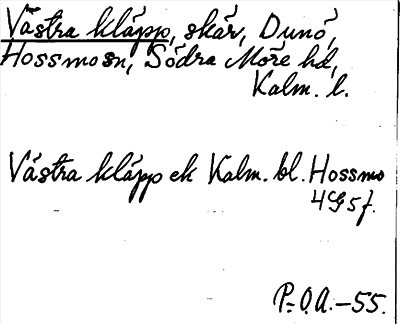 Västra kläpp, skär, Dunö,
Hossmo sn, Södra Möre hd,
Kalm. l.
Västra kläpp ek Kalm. bl. Hossmo
4G 5f.
P.-O.A.-55.